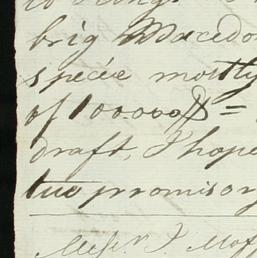 to being
brig Macedo
specie mostly
of 100000$ =
draft, I hope
two promisory
Messrs J. Moff